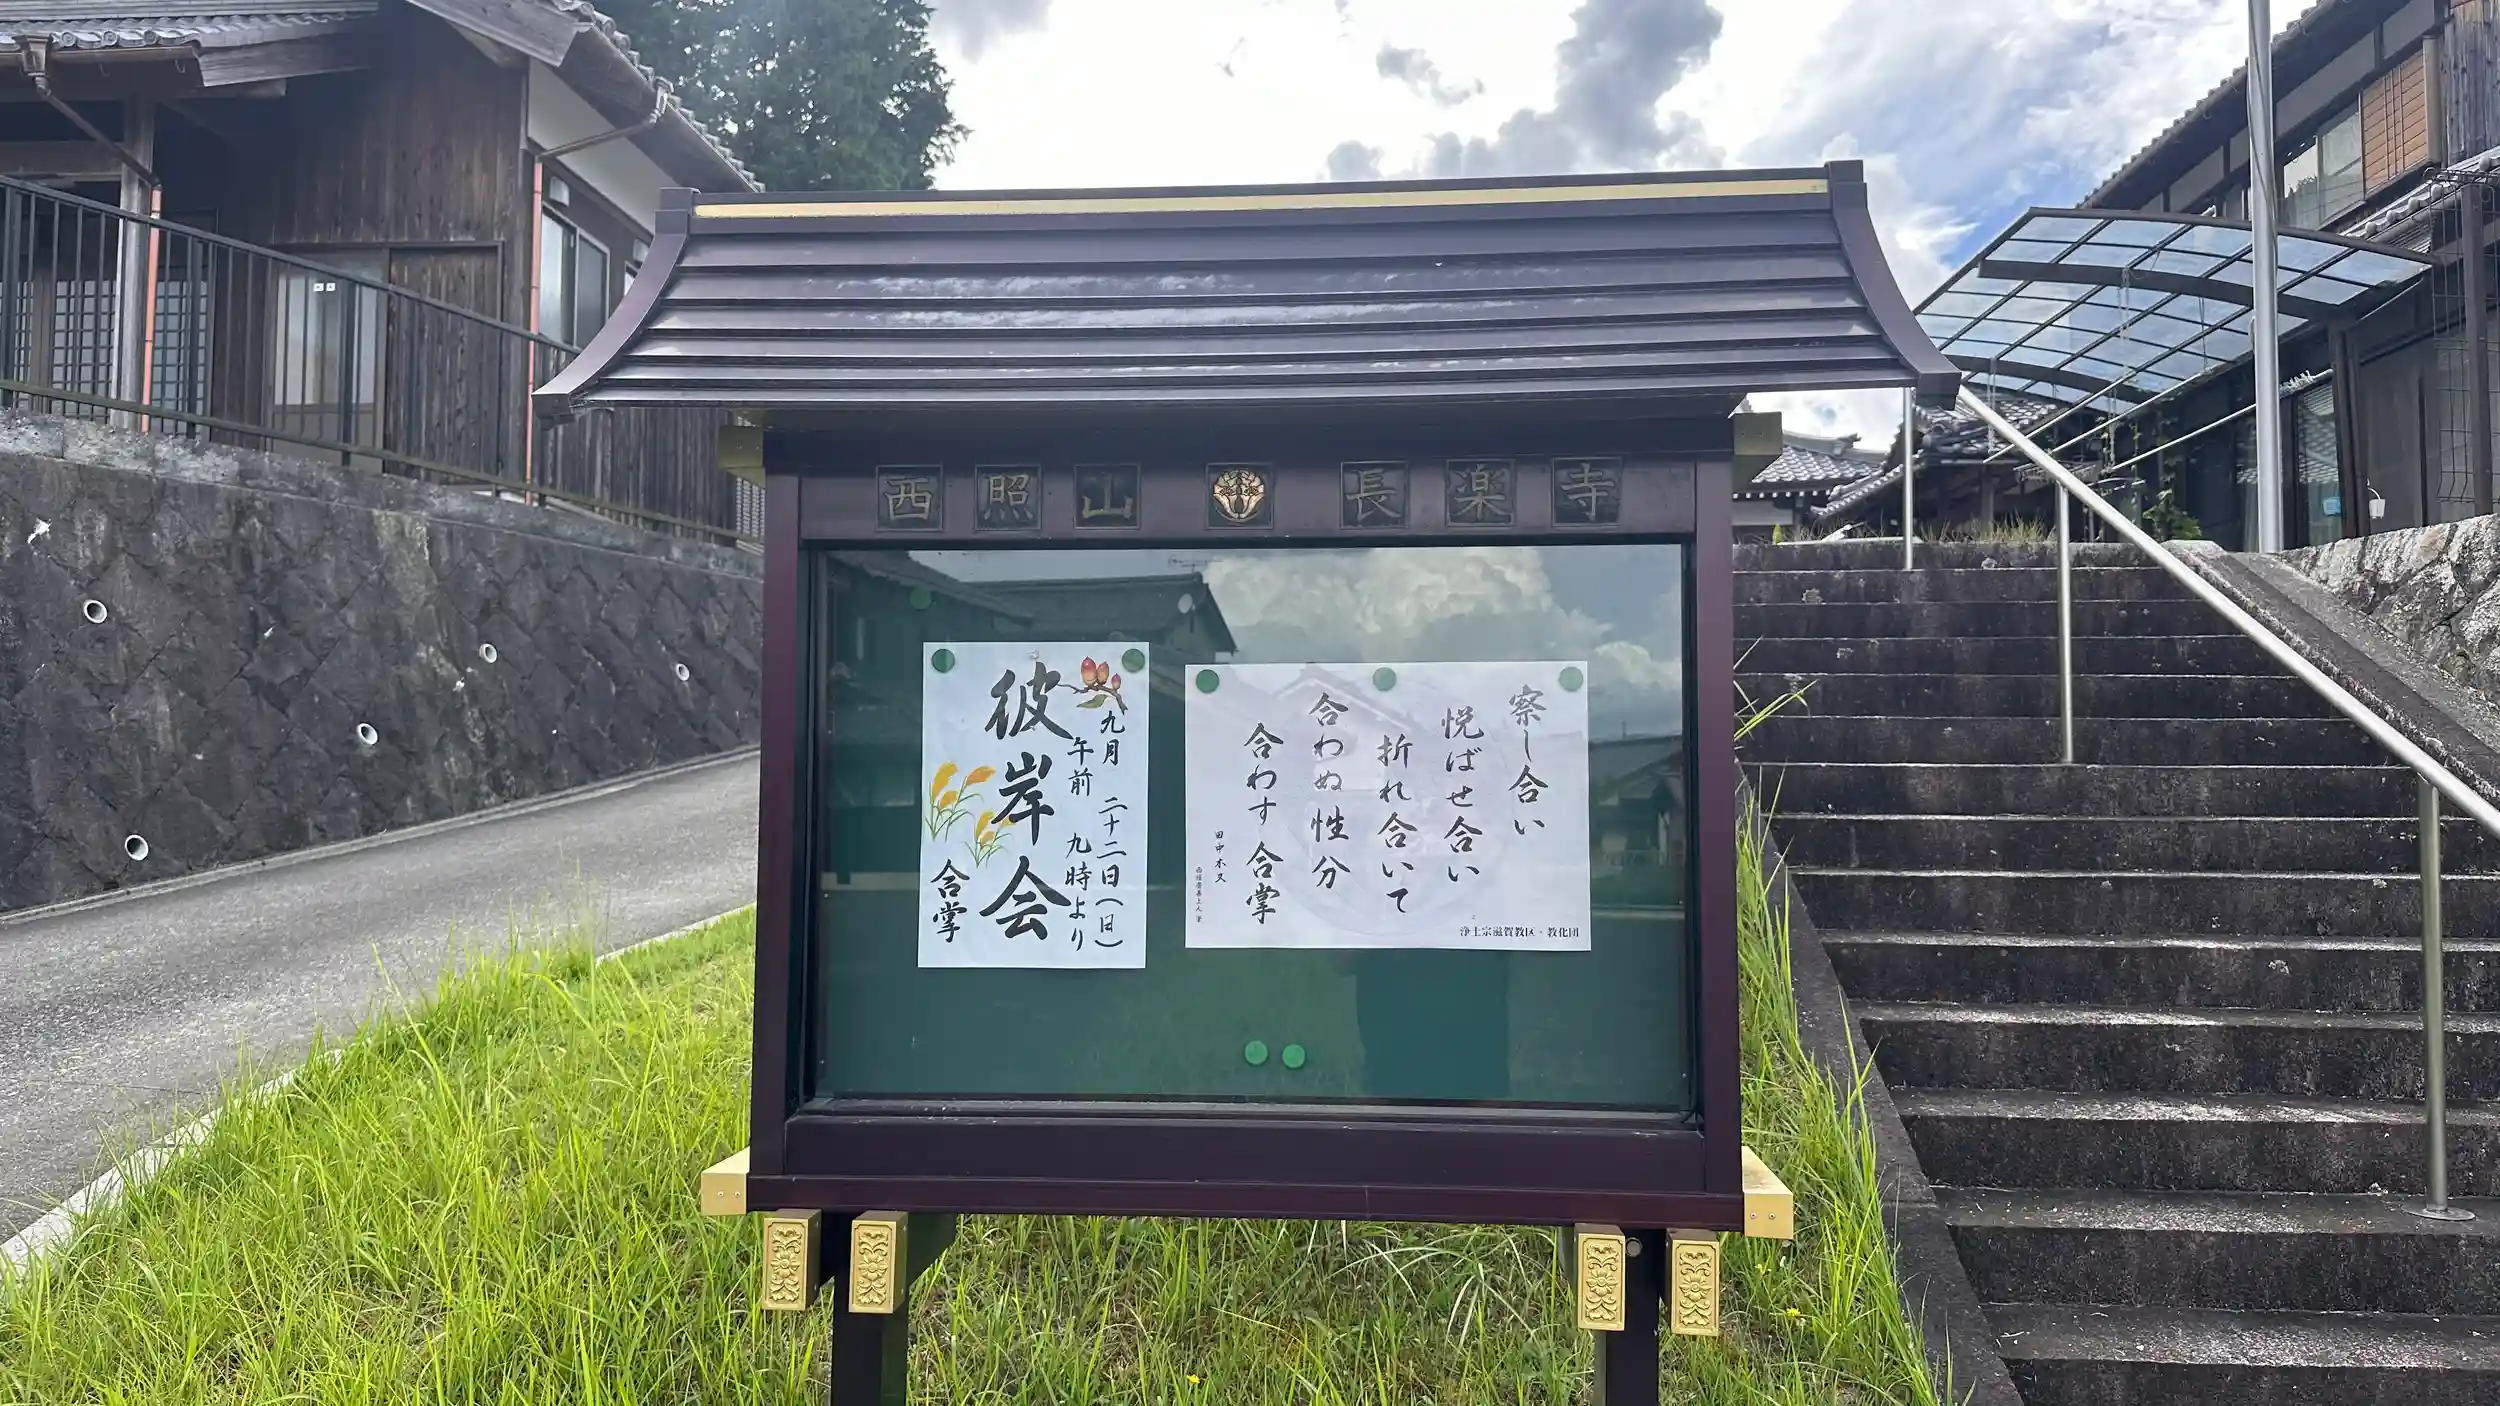 西照山 長楽寺
察し合い
悦ばせ合い
折れ合いて
合わぬ性分
合わす合掌
田中木叉
浄土宗滋賀教区・教化団
九月 二十二日(日)
午前 九時より
彼岸会
合掌